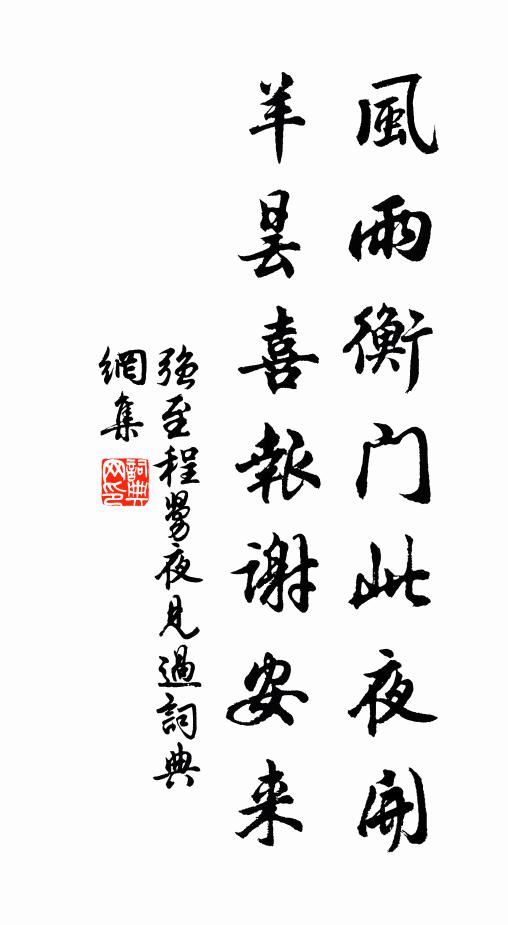 風雨衡门此夜開
羊昙喜報谢安来
强至程舅夜見過詞典
網集
詞典网印